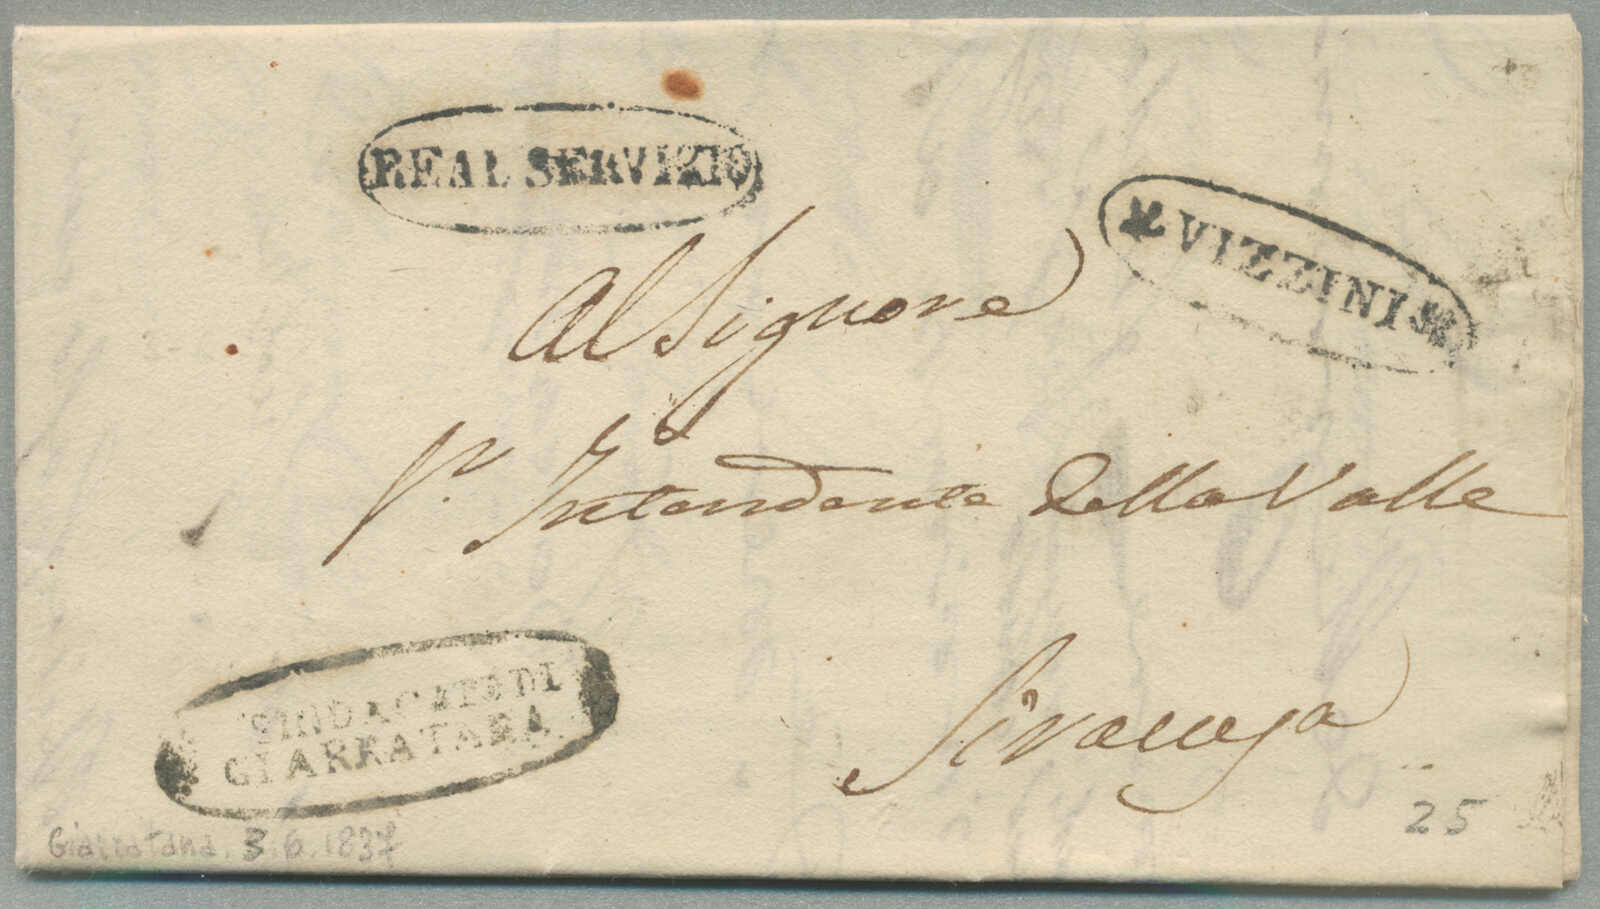 REAL SERVIZIO
VIZZINI
Al Signore
Sr. Intendente della Valle
Siracusa
SINDACATO DI
GIARRATANA
Giarratana. 3.6.1837
25